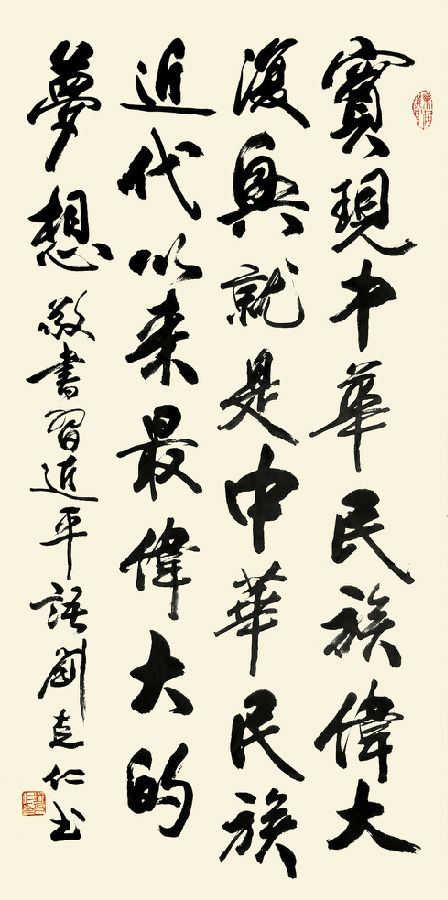 實現中華民族偉大
復興就是中華民族
近代以來最偉大的
夢想 敬書習近平語劉克仁书